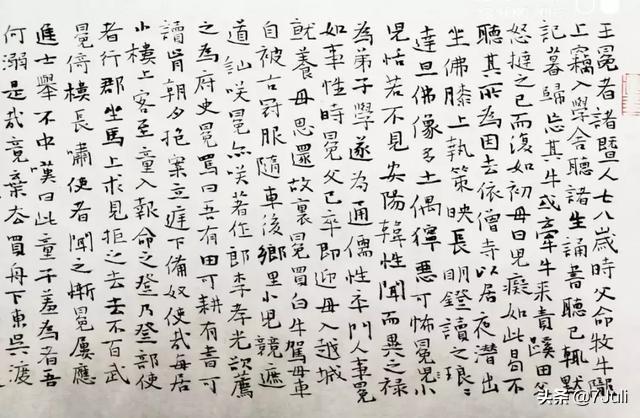 王冕者諸暨人七八歲時父命牧牛隴
上竊入學舍聽諸生誦書聽已輒默
記暮歸忘其牛或牽牛來責蹊田父
怒撻之已而復如初母曰兒癡如此曷不
聽其所為因去依僧寺以居夜潛出
坐佛膝上執策映長明鐙讀之琅琅
達旦佛像多土偶獰惡可怖冕小
兒恬若不見安陽韓性聞而異之祿
為弟子學遂為通儒性卒門人事冕
如事性時冕父已卒即迎母入越城
就養母思還故裏冕買白牛駕母車
自被古冠服隨車後鄉里小兒競遮
道訕咲冕亦咲著作郎李孝光欲薦
之為府史冕罵曰吾有田可耕有書可
讀肯朝夕抱案立庭下備奴使哉每居
小樓上客至童入報命之登乃登部使
者行郡坐馬上求見拒之去去不百武
冕倚樓長嘯使者聞之慚冕屢應
進士舉不中嘆曰此童子羞為者吾
何溺是哉竟棄去買舟下東吳渡
头条 @7Juli